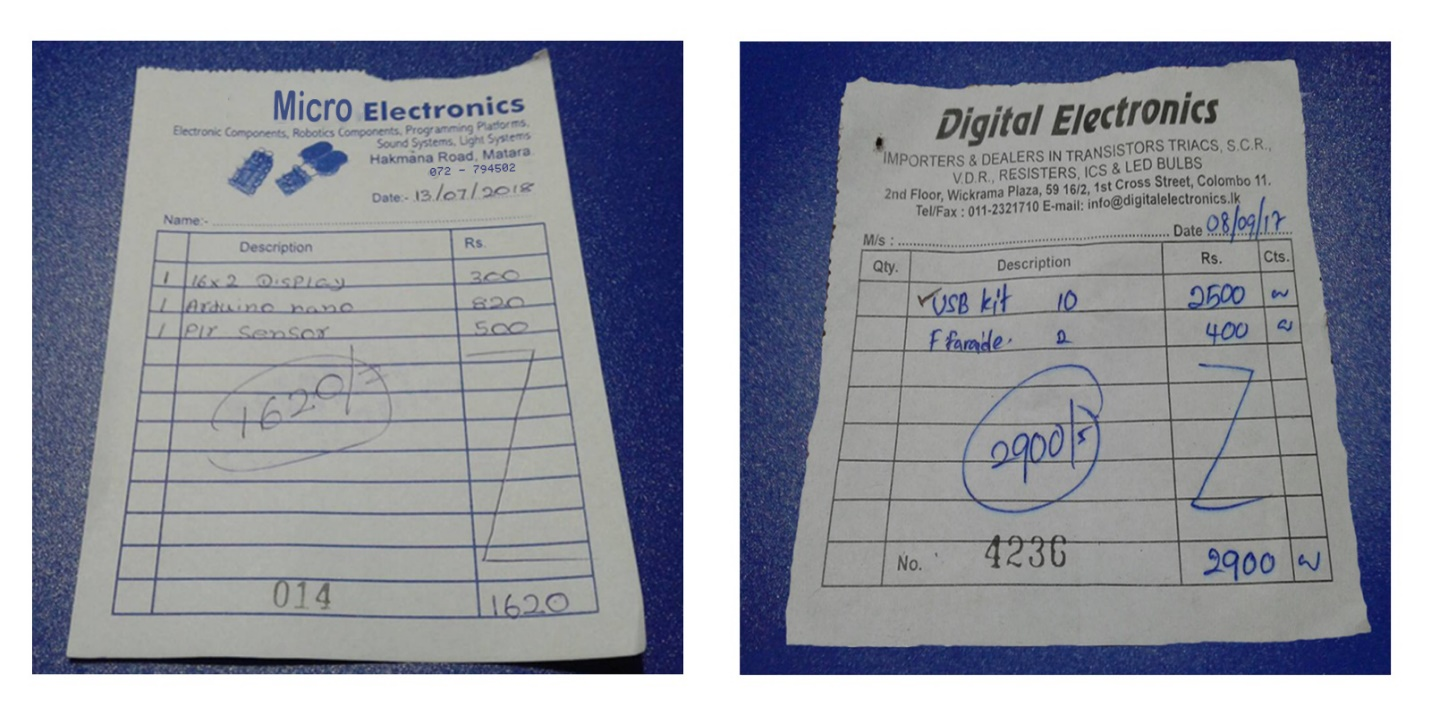 Micro Electronics
Electronic Components, Robotics Components, Programming Platforms,
Sound Systems, Light Systems
Hakmana Road, Matara.
072 - 794502
Date:- 13/07/2018
Name:-
Description Rs.
1 16x2 Display 300
1 Arduino nano 820
1 PIr Sensor 500
1620/=
014 1620
Digital Electronics
IMPORTERS & DEALERS IN TRANSISTORS TRIACS, S.C.R.,
V.D.R., RESISTERS, ICS & LED BULBS
2nd Floor, Wickrama Plaza, 59 16/2, 1st Cross Street, Colombo 11.
Tel/Fax : 011-2321710 E-mail: info@digitalelectronics.lk
M/s : Date 08/09/17
Qty. Description Rs. Cts.
USB kit 10 2500
2 400
2900/
No. 4236 2900